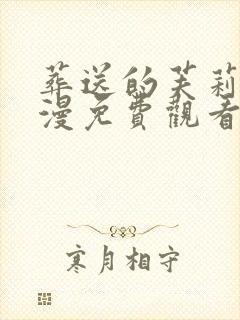 葬送的芙莉
漫免費觀看
寒月相守